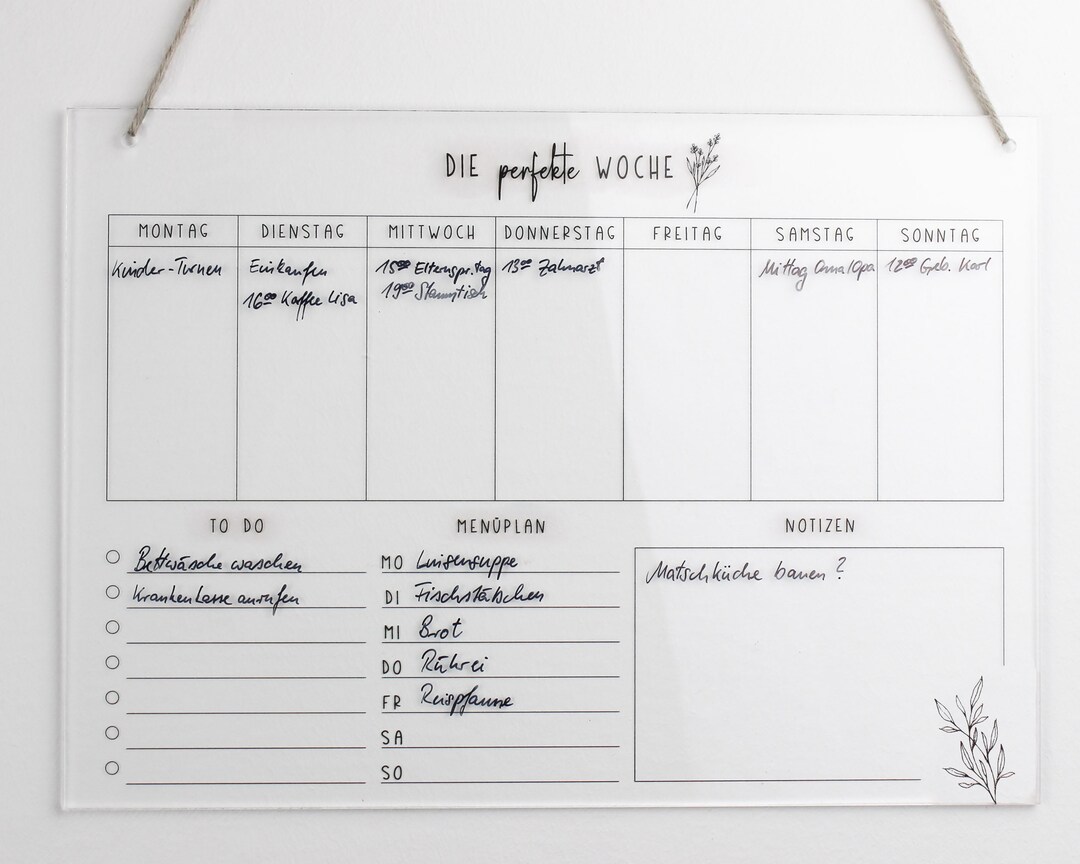 DIE perfekte WOCHE
MONTAG DIENSTAG MITTWOCH DONNERSTAG FREITAG SAMSTAG SONNTAG
Kinder-Turnen
Einkaufen
16⁰⁰ Kaffee Lisa
15⁰⁰ Elternspr.tag
19⁰⁰ Stammtisch
13⁰⁰ Zahnarzt
Mittag Oma/Opa
12⁰⁰ Geb. Karl
TO DO
Bettwäsche waschen
Krankenkasse anrufen
MENÜPLAN
MO Linsensuppe
DI Fischstäbchen
MI Brot
DO Rührei
FR Reispfanne
SA
SO
NOTIZEN
Matschküche bauen?